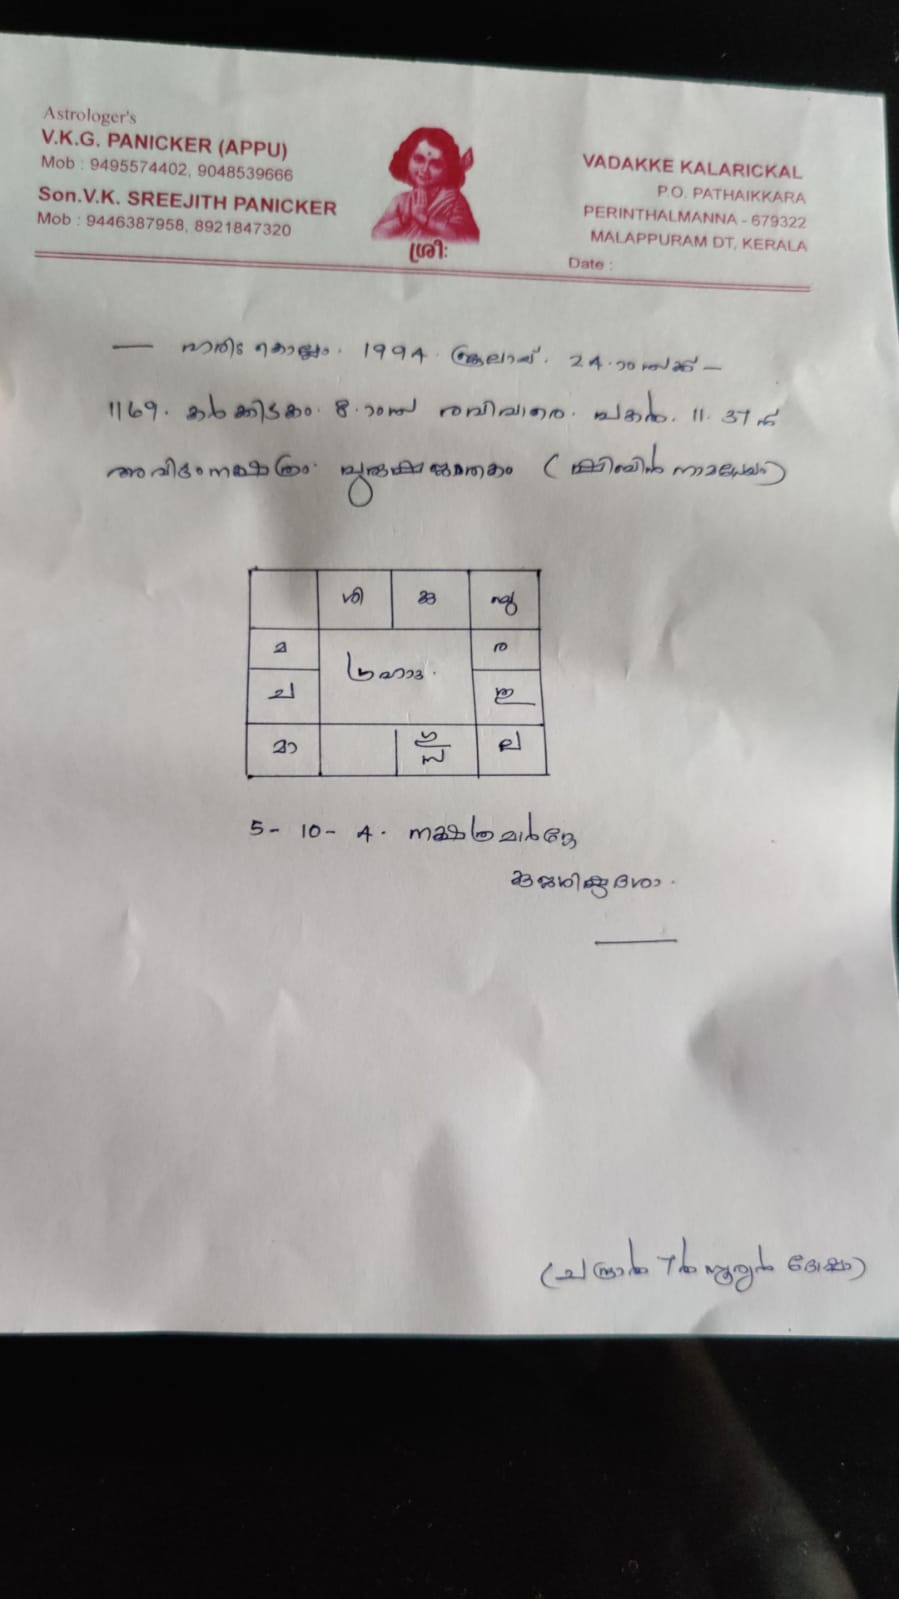 Astrologer's
V.K.G. PANICKER (APPU)
Mob : 9495574402, 9048539666
Son.V.K. SREEJITH PANICKER
Mob : 9446387958, 8921847320
ശ്രീഃ
VADAKKE KALARICKAL
P.O. PATHAIKKARA
PERINTHALMANNA - 679322
MALAPPURAM DT, KERALA
Date :
— കൊല്ലം. 1994. ജൂലായ്. 24.ാം —
1169. കർക്കിടകം. 8.ാം രവിവാരെ. പകൽ. 11. 37 ന്
അവിട്ടംനക്ഷത്രം പുരുഷജാതകം (
ശി കു
മ ര
ഗ്രഹാഃ
ച
മാ ല
5- 10- 4. നക്ഷത്ര
കുജശിഷ്ടദശാ.
(ചന്ദ്രാൽ 7ൽ സൂര്യൻ ദോഷം)